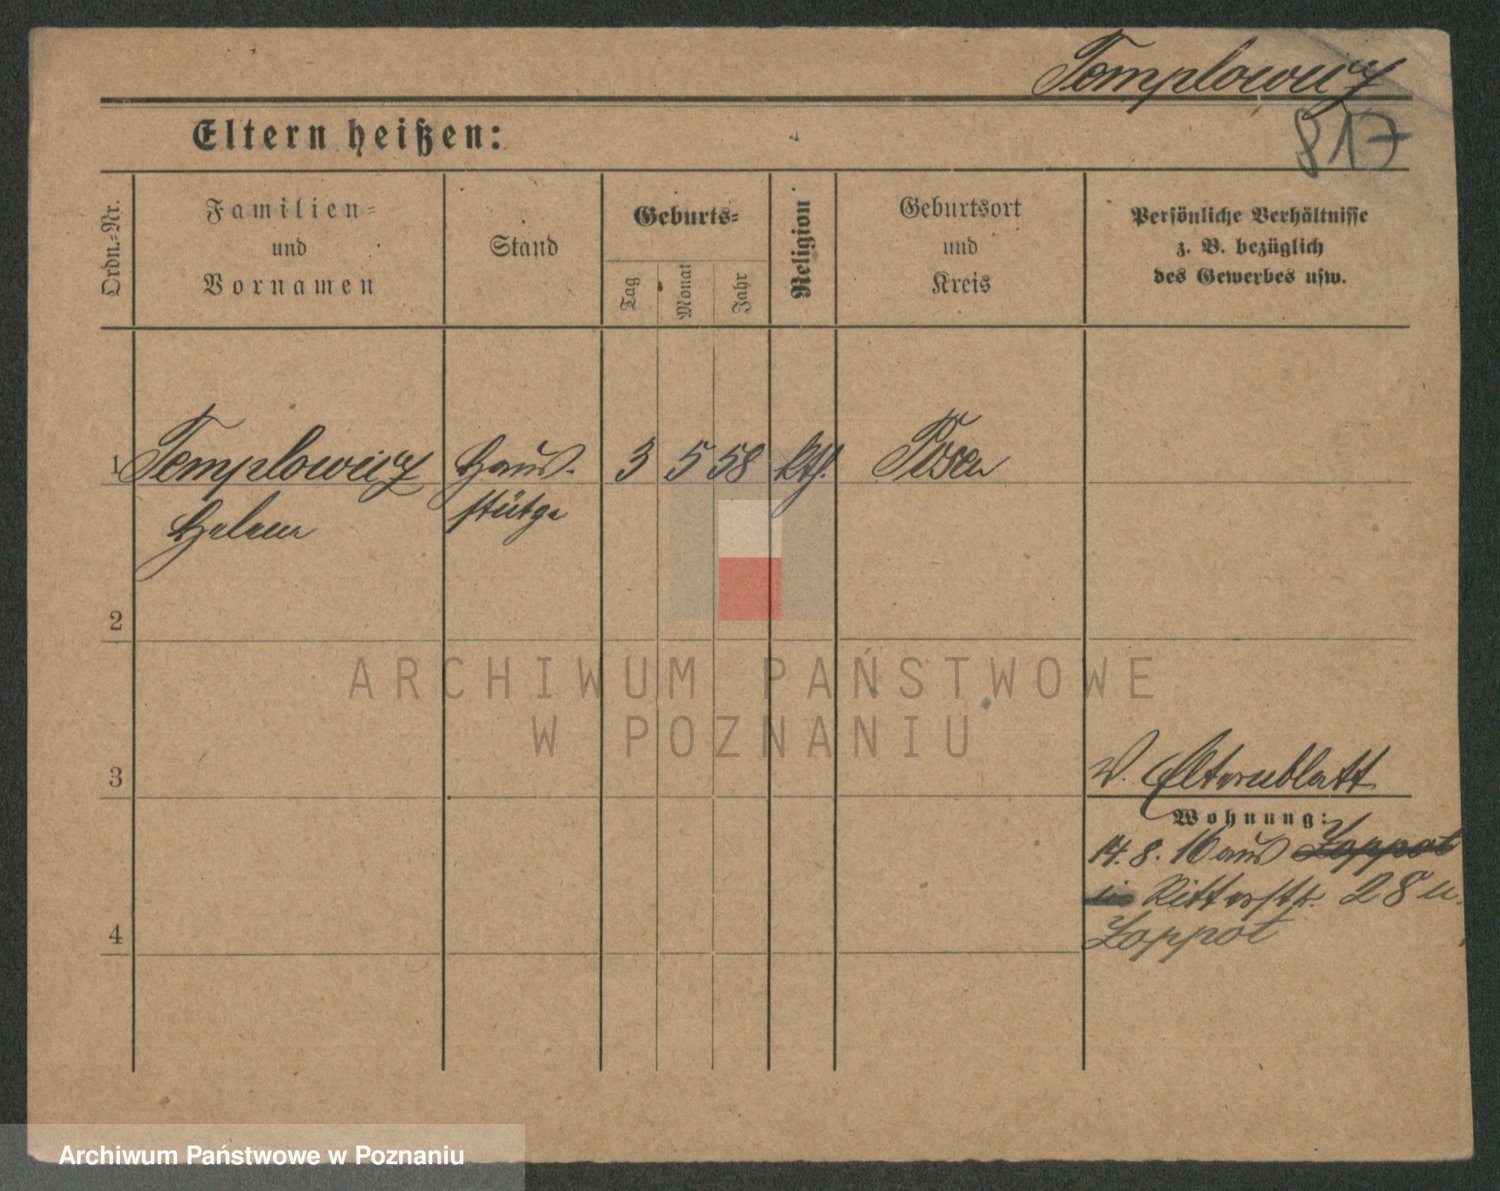 Templowicz
817
Eltern heißen:
Ordn.-Nr.
Familien-
und
Vornamen
Stand
Geburts-
Tag
Monat
Jahr
Religion
Geburtsort
und
Kreis
Persönliche Verhältnisse
z. B. bezüglich
des Gewerbes usw.
1 Templowicz Haus- 3 5 58 kth. Posen
Helene stütze
2
ARCHIWUM PAŃSTWOWE
W POZNANIU
3
V. Elternblatt
Wohnung:
14. 8. 16 aus Zoppot
Ritterstr. 28 n.
4
Zoppot
Archiwum Państwowe w Poznaniu